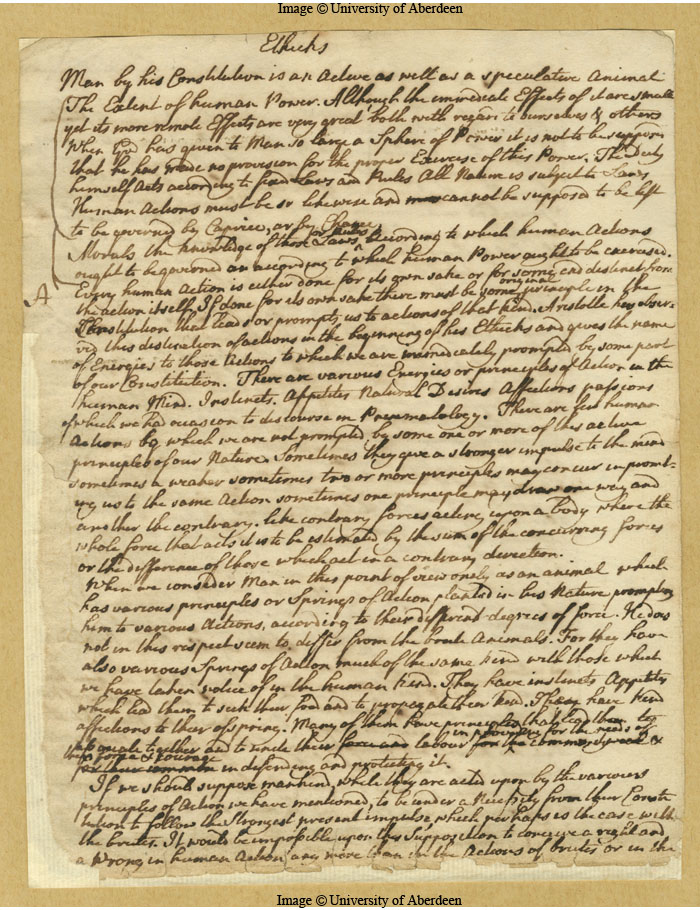 Image © University of Aberdeen
Ethicks
Man by his Constitution is an Active as well as a speculative Animal
The Extent of human Power. Although the immediate Effects of it are small
yet its more remote Effects are very great both with regard to ourselves & others
When God has given to Man so large a Sphere of Power it is not to be suppos
that he has made no provision for the proper Exercise of this Power. The Deity
himself Acts according to fixed Laws and Rules All Nature is subject to Laws
Human Actions must be so likewise and cannot be supposed to be left
to be governed by Caprice, or by Chance
Morals the knowledge of those Laws or Rules according to which human Actions
ought to be governed according to which human Power ought to be exercised.
A Every human Action is either done for its own sake or for some end distinct from
the action itself. If done for its own sake there must be some original principle in the
Constitution that leads or prompts us to actions of that kind. Aristotle has obser
ved this distinction of actions in the beginning of his Ethicks and gives the name
of Energies to those Actions to which we are immediately prompted by some part
of our Constitution. There are various Energies or principles of Action in the
human Mind. Instincts. Appetites Natural Desires Affections passions
of which we had occasion to discourse in Pneumatology. There are few human
Actions to which we are not prompted by some one or more of this active
principles of our Nature. Sometimes they give a stronger impulse to the mind
sometimes a weaker sometimes two or more principles may concur in prompt-
ing us to the same Action sometimes one principle may draw one way and
another the contrary. like contrary forces acting upon a body where the
whole force that acts it is to be estimated by the sum of the concurring forces
or the difference of those which act in a contrary direction.
When we consider Man in this point of view only as an animal which
has various principles or Springs of Action planted in his Nature prompting
him to various Actions, according to their different degrees of force. He does
not in this respect seem to differ from the brute Animals. For they have
also various Springs of Action much of the same kind with those which
we have taken notice of in the human kind. They have instincts Appetites
which lead them to seek their food and to propagate their kind. They have kind
affections to their ofspring. Many of them have principles that lead them to
associate together and to unite their force and labour in providing for the needs of for the community &
their force & courage for their common in defending and protecting it.
If we should suppose mankind, while they are acted upon by the various
principles of Action we have mentioned, to be under a Necessity from their Consti
tution to follow the Strongest present impulse, which perhaps is the case with
the brutes. It would be impossible upon this Supposition to conceive a right and
a Wrong in human Action any more than in the Actions of brutes or in the
Image © University of Aberdeen